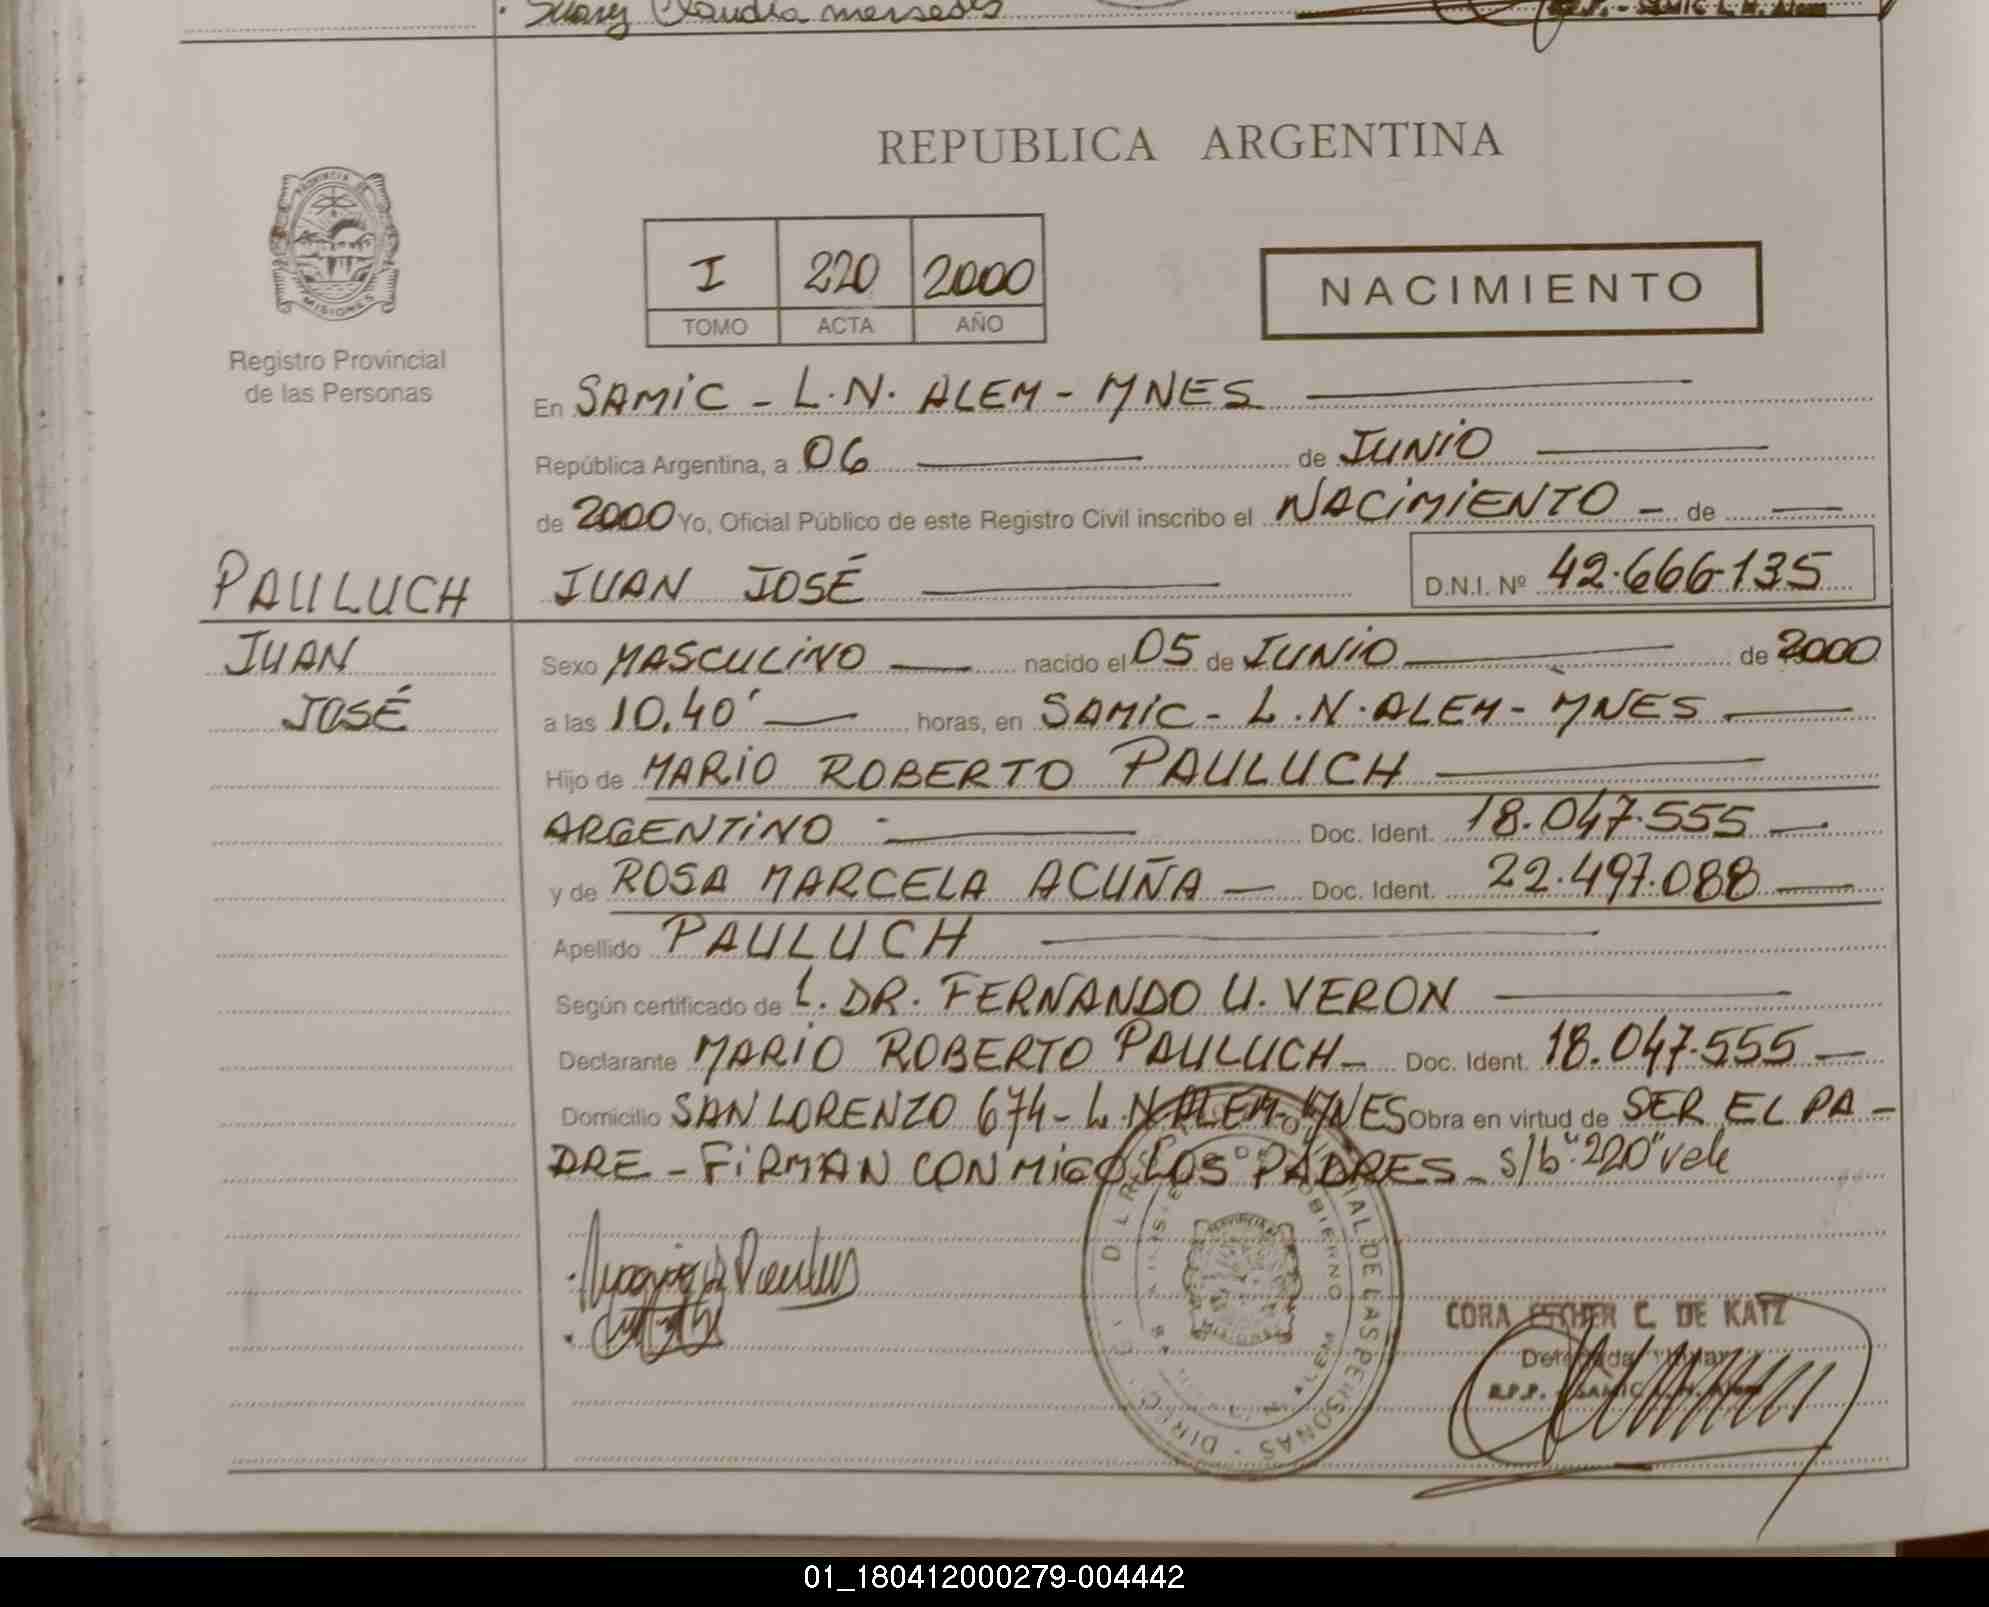 Suarez Claudia mersedes
R.P.P. - SAMIC L. N. Alem
REPUBLICA ARGENTINA
PROVINCIA DE MISIONES
I 220 2000
TOMO ACTA AÑO
NACIMIENTO
Registro Provincial
de las Personas
En SAMIC - L.N. ALEM - MNES
República Argentina, a 06 de JUNIO
de 2000 Yo, Oficial Público de este Registro Civil inscribo el NACIMIENTO - de
PAULUCH JUAN JOSÉ D.N.I. Nº 42.666.135
JUAN Sexo MASCULINO nacido el 05 de JUNIO de 2000
JOSÉ a las 10,40' horas, en SAMIC - L.N. ALEM - MNES
Hijo de MARIO ROBERTO PAULUCH
ARGENTINO Doc. Ident. 18.047.555
y de ROSA MARCELA ACUÑA Doc. Ident. 22.497.088
Apellido PAULUCH
Según certificado de L. DR. FERNANDO U. VERON
Declarante MARIO ROBERTO PAULUCH - Doc. Ident. 18.047.555
Domicilio SAN LORENZO 674 - L.N. ALEM - MNES Obra en virtud de SER EL PA-
DRE - FIRMAN CONMIGO LOS PADRES - s/b "220" vale
CORA ESTHER C. DE KATZ
Delegada Titular
R.P.P. - SAMIC L. N. Alem
01_180412000279-004442